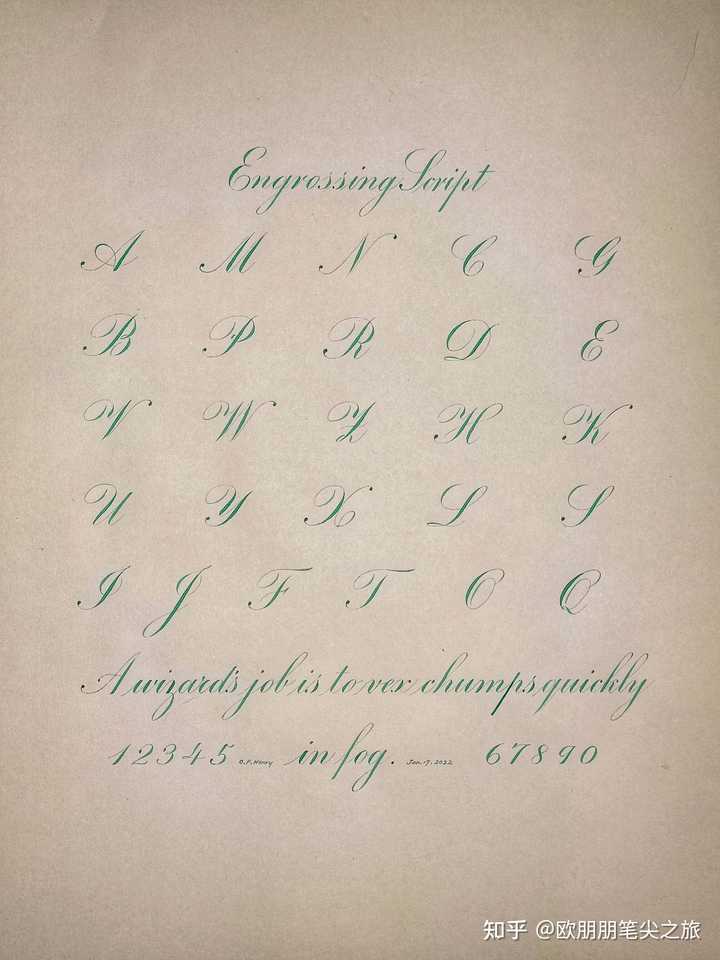 Engrossing Script
A M N C G
B P R D E
V W Z H K
U Y X L S
I J F T O Q
A wizard's job is to vex chumps quickly
12345 O.P.Henry in fog. Jan.17.2022 67890
知乎 @欧朋朋笔尖之旅